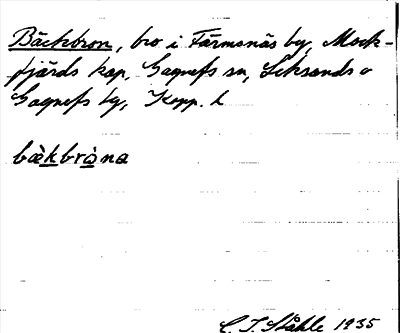 Bäckbron, bro i Färmsnäs by, Mock-
fjärds kap. Gagnefs sn, Leksands o
Gagnefs tg, Kopp. l
bæ̀kbrὰna
C. I. Ståhle 1935